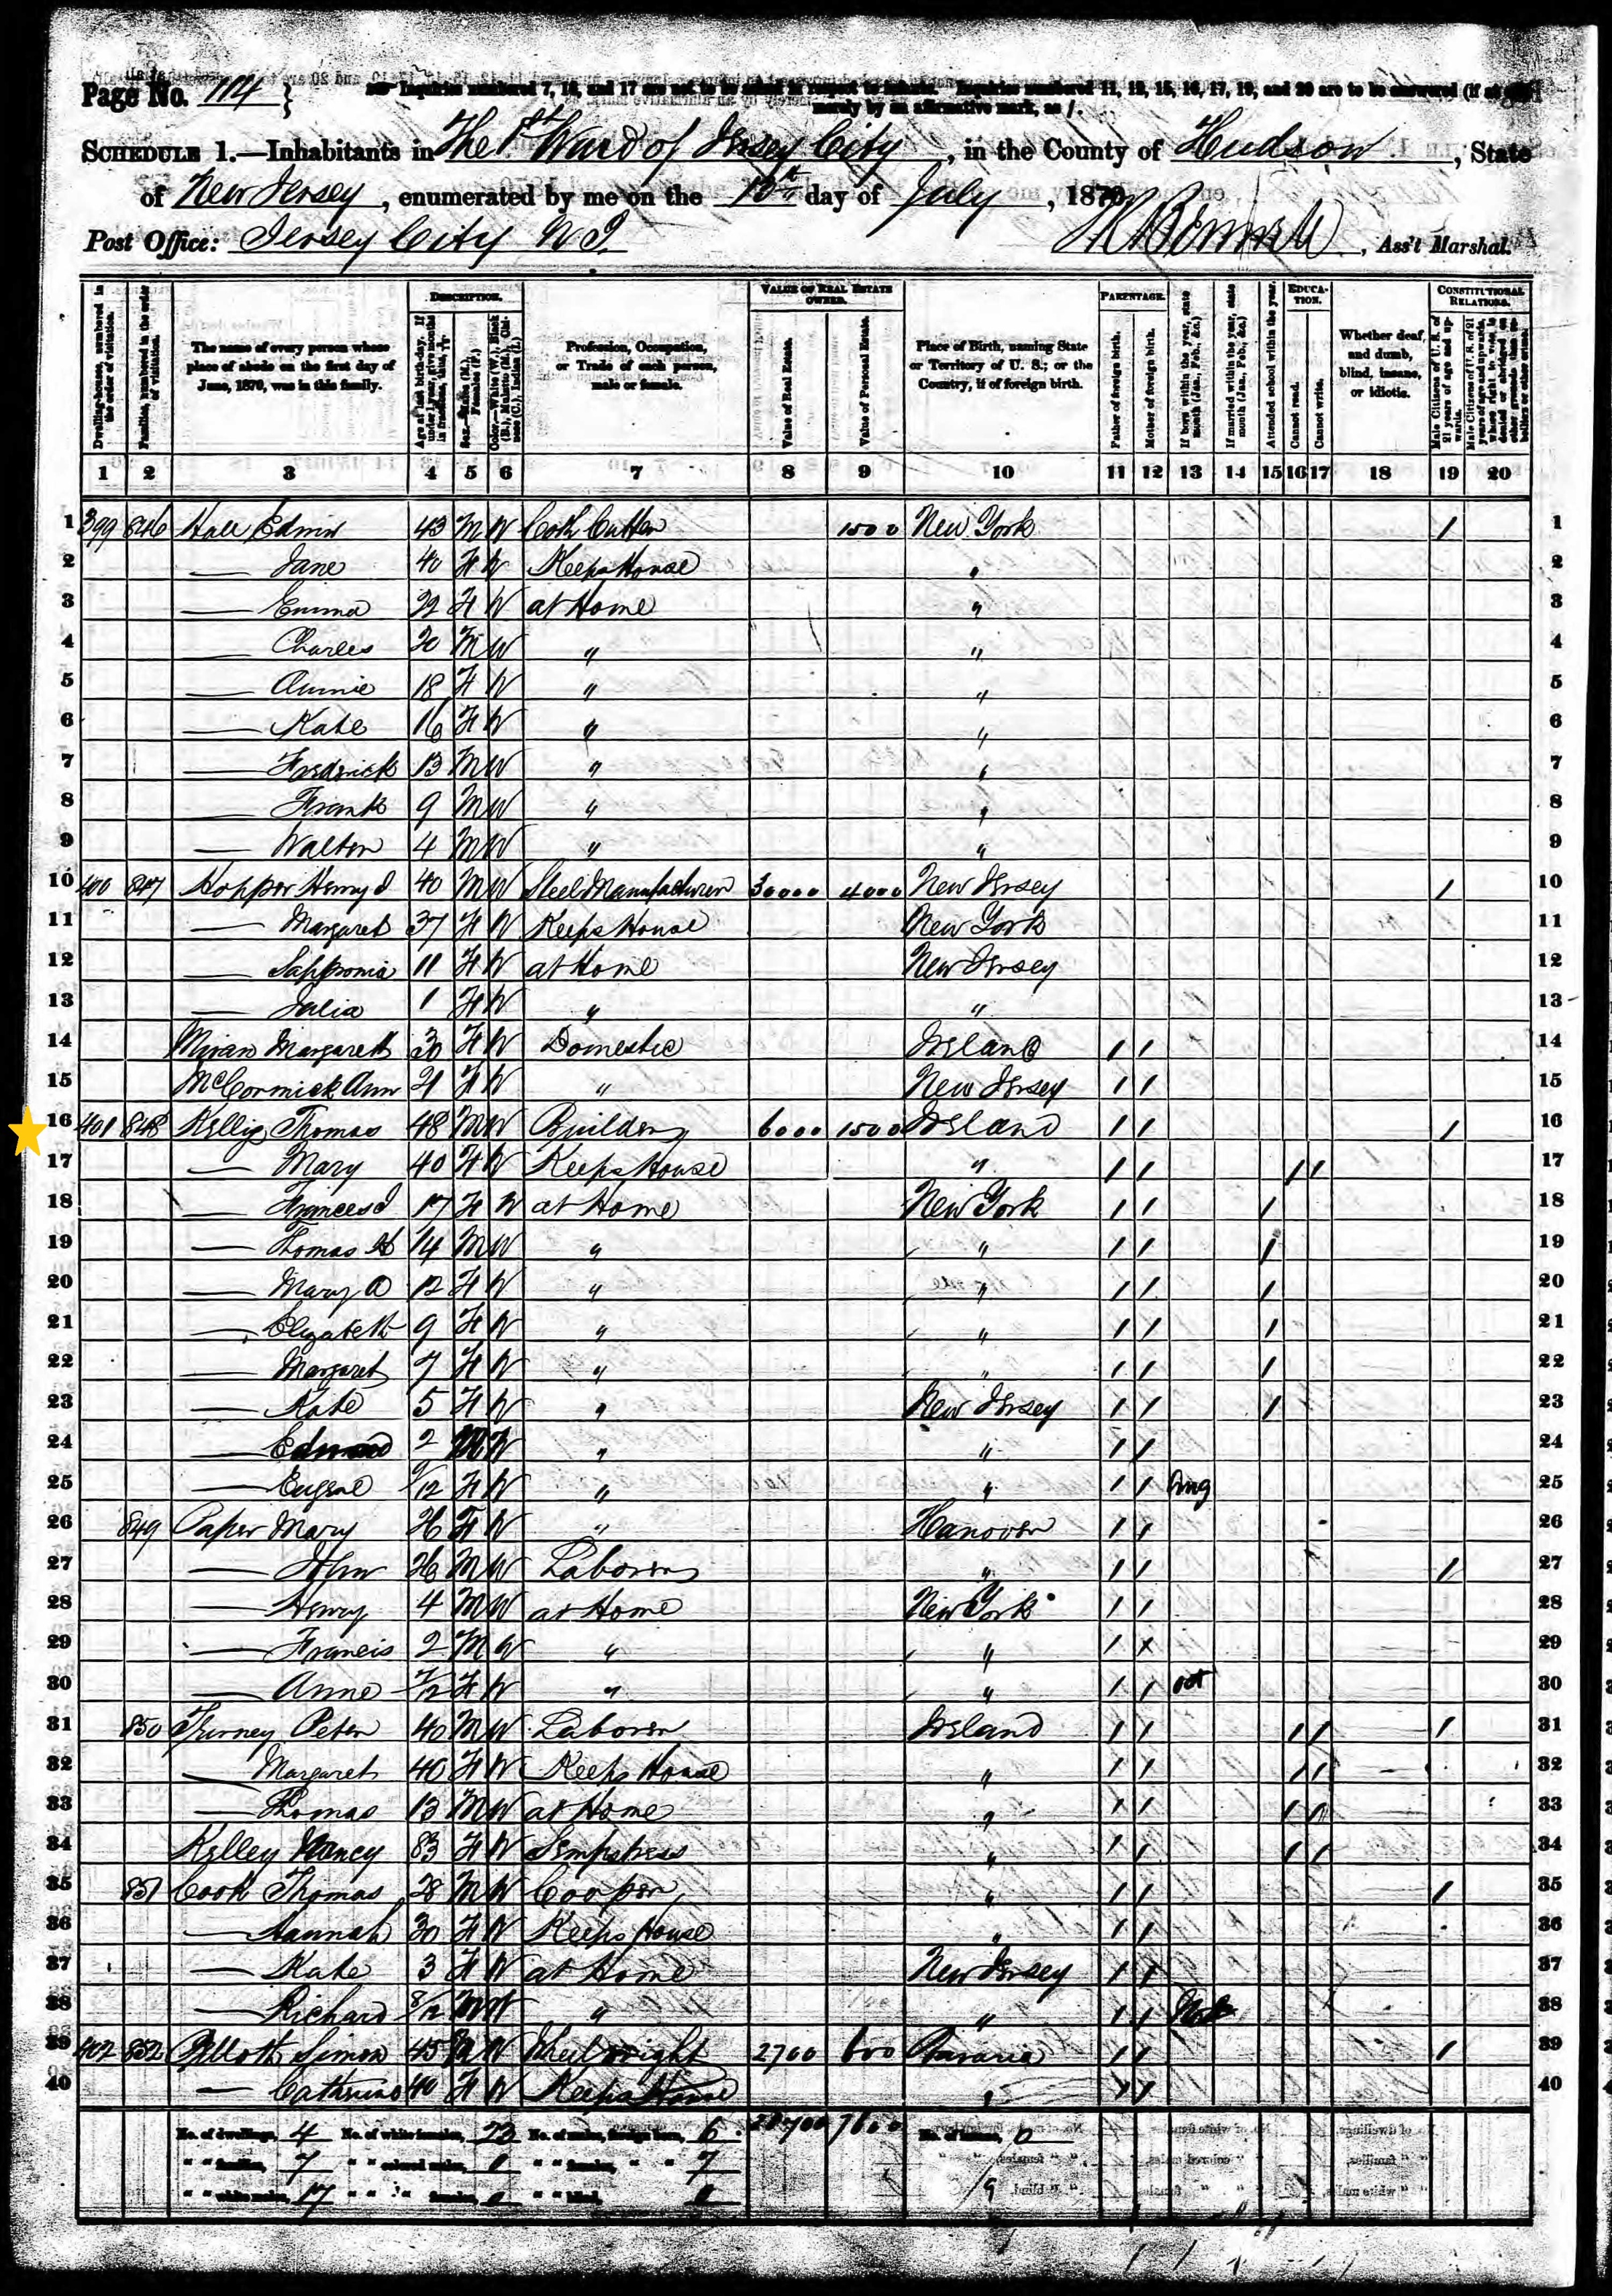 Page No. 114
Inquiries numbered 7, 16, and 17 are not to be asked in respect to infants. Inquiries numbered 11, 12, 15, 16, 17, 19, and 20 are to be answered (if at all)
merely by an affirmative mark, as /.
SCHEDULE 1.—Inhabitants in The 1st Ward of Jersey City, in the County of Hudson, State
of New Jersey, enumerated by me on the 13th day of July, 1870.
Post Office: Jersey City N.J. , Ass't Marshal.
DESCRIPTION. VALUE OF REAL ESTATE OWNED. PARENTAGE. EDUCATION. CONSTITUTIONAL RELATIONS.
Dwelling-houses, numbered in the order of visitation.
Families, numbered in the order of visitation.
The name of every person whose place of abode on the first day of June, 1870, was in this family.
Age at last birth-day. If under 1 year, give months in fractions, thus, 3/12.
Sex.—Males (M.), Females (F.)
Color.—White (W.), Black (B.), Mulatto (M.), Chinese (C.), Indian (I.)
Profession, Occupation, or Trade of each person, male or female.
Value of Real Estate.
Value of Personal Estate.
Place of Birth, naming State or Territory of U. S.; or the Country, if of foreign birth.
Father of foreign birth.
Mother of foreign birth.
If born within the year, state month (Jan., Feb., &c.)
If married within the year, state month (Jan., Feb., &c.)
Attended school within the year.
Cannot read.
Cannot write.
Whether deaf and dumb, blind, insane, or idiotic.
Male Citizens of U. S. of 21 years of age and upwards.
Male Citizens of U. S. of 21 years of age and upwards, whose right to vote is denied or abridged on other grounds than rebellion or other crime.
1 2 3 4 5 6 7 8 9 10 11 12 13 14 15 16 17 18 19 20
1 399 846 Hall Edwin 43 M W Cutter 1500 New York / 1
2 — Jane 40 F W Keeps House " 2
3 — Emma 22 F W at Home " 3
4 — Charles 20 M W " " 4
5 — Annie 18 F W " " 5
6 — Kate 16 F W " " 6
7 — Fredrick 13 M W " " 7
8 — Frank 9 M W " " 8
9 — Walter 4 M W " " 9
10 400 847 Hopper Henry J 40 M W Steel Manufacturer 30000 4000 New Jersey / 10
11 — Margaret 37 F W Keeps House New York 11
12 — 11 F W at Home New Jersey 12
13 — Julia 1 F W " " 13
14 Margarett 30 F W Domestic Ireland / / 14
15 McCormick Ann 21 F W " New Jersey / / 15
16 401 848 Thomas 48 M W Builder 6000 1500 Ireland / / / 16
17 — Mary 40 F W Keeps House " / / / / 17
18 — Frances J 17 F W at Home New York / / / 18
19 — Thomas H 14 M W " " / / / 19
20 — Mary A 12 F W " " / / / 20
21 — Elizabeth 9 F W " " / / / 21
22 — Margaret 7 F W " " / / / 22
23 — Kate 5 F W " New Jersey / / / 23
24 — Edmund 2 W " " / / 24
25 — 9/12 F W " " / / Aug 25
26 849 Paper Mary 26 F W " Hanover / / 26
27 — John 26 M W Laborer " / / / 27
28 — Henry 4 M W at Home New York / / 28
29 — Francis 2 M W " " / x 29
30 — Anne 7/12 F W " " / / Oct 30
31 850 Peter 40 M W Laborer Ireland / / / / / 31
32 — Margaret 40 F W Keeps House " / / / / 32
33 — Thomas 13 M W at Home " / / / / 33
34 Kelley Nancy 83 F W Sempstress " / / / / 34
35 851 Cook Thomas 28 M W Cooper " / / / 35
36 — Hannah 30 F W Keeps House " / / 36
37 — Kate 3 F W at Home New Jersey / / 37
38 — Richard 8/12 M W " " / / 38
39 402 852 Simon 45 M W Wheelwright 2700 600 Bavaria / / / 39
40 — Cathrine 40 F W Keeps House " / / 40
No. of dwellings, 4 No. of white females, 23 No. of males, foreign born, 6 7600 No. of insane, 0
" " families, 7 " " colored males, 0 " " females, " " 7
" " white males, 17 " " " females, 0 " " blind, 0